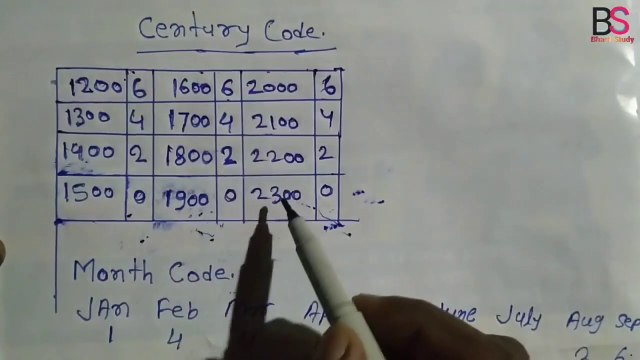 BS
Century Code.
1200 6 1600 6 2000 6
1300 4 1700 4 2100 4
1400 2 1800 2 2200 2
1500 0 1900 0 2300 0
Month Code.
JAn Feb July Aug Sep
1 4